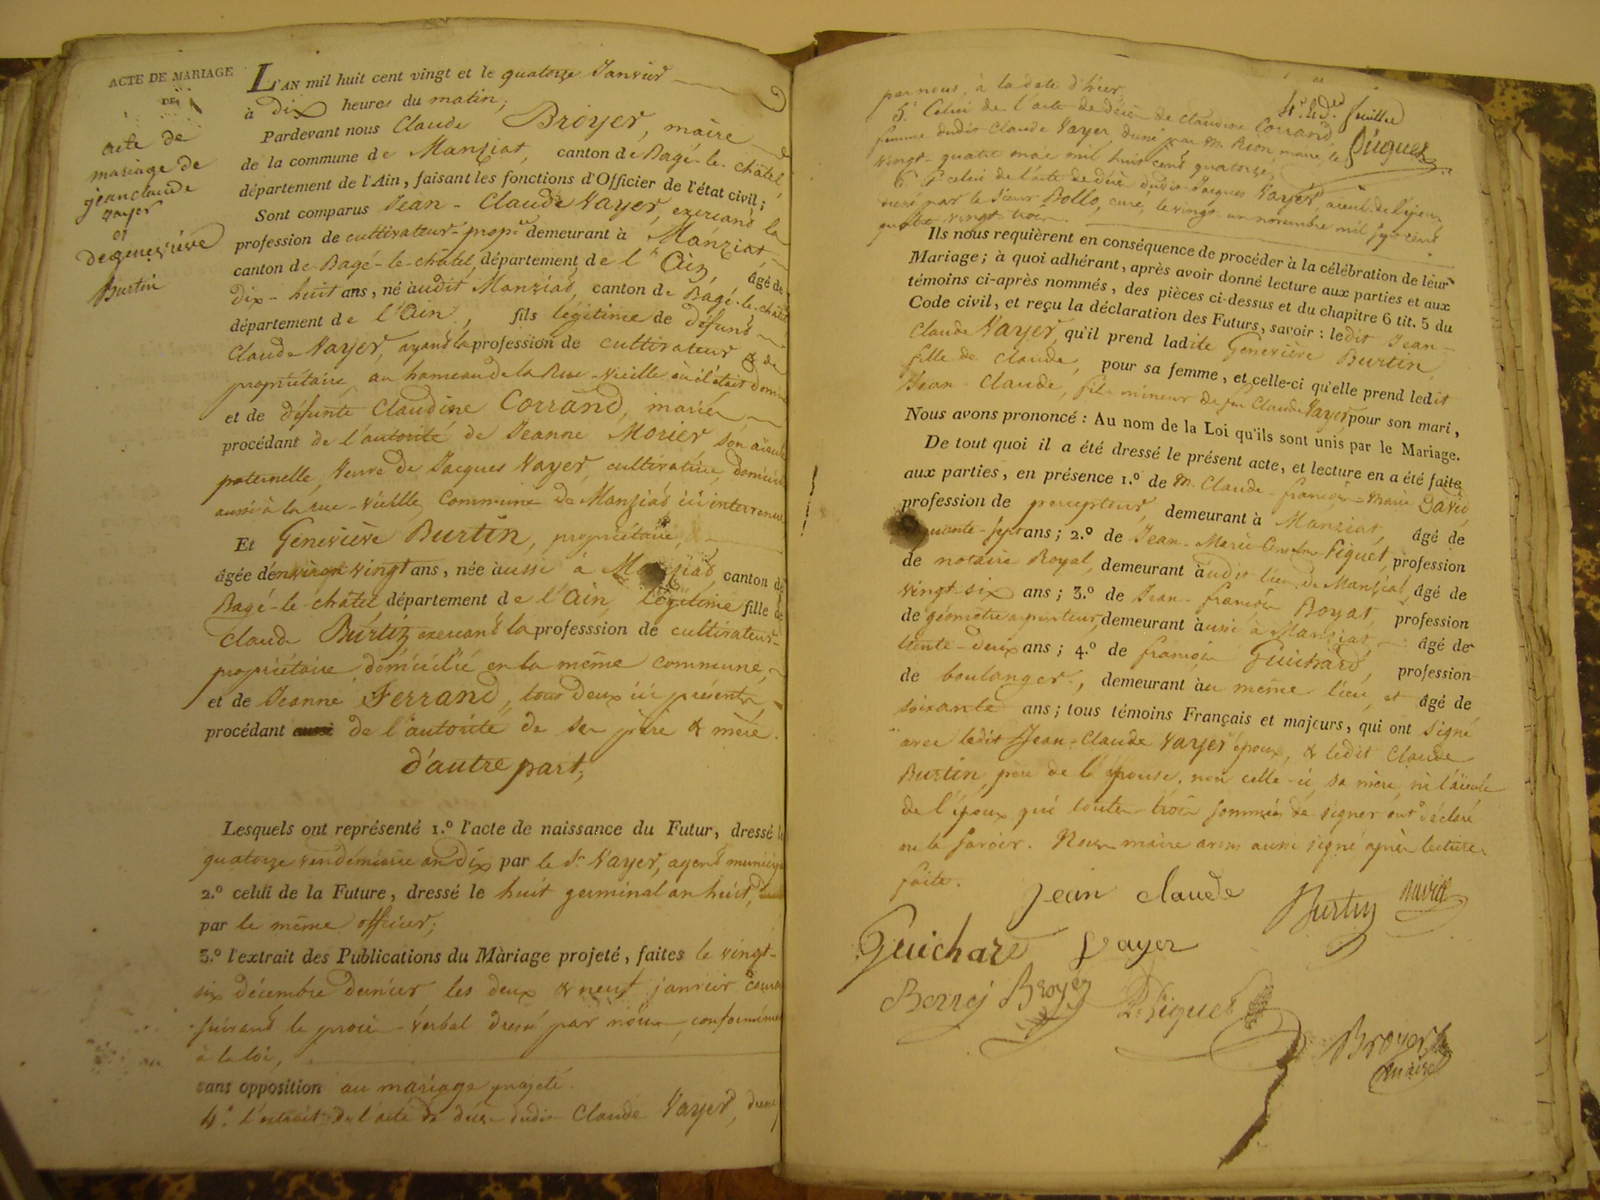 ACTE DE MARIAGE
DE
acte de
mariage de
jean claude
vayer
et
de genevieve
Burtin
L'AN mil huit cent vingt et le quatorze Janvier
à dix heures du matin,
Pardevant nous Claude Broyer, maire
de la commune de Manziat, canton de Bagé-le-châtel,
département de l'Ain, faisant les fonctions d'Officier de l'état civil;
Sont comparus Jean-Claude Vayer, exerçant la
profession de cultivateur-propre demeurant à Manziat,
canton de Bagé-le-châtel, département de l'Ain, âgé de
dix-huit ans, né audit Manziat, canton de Bagé-le-châtel
département de l'Ain, fils légitime de défunt
Claude Vayer, ayant la profession de cultivateur & de
propriétaire, au hameau de la Rue-Vieille où il était domic
et de défunte Claudine Corrand, mariés
procédant de l'autorité de Jeanne Morier, son aieule
paternelle, Veuve de Jacques Vayer, cultivatrice, domicil
aussi à la rue-vieille Commune de Manziat ici intervenue
Et Geneviève Burtin, propriétaire,
âgée d'environ vingt ans, née aussi à Manziat, canton de
Bagé-le-châtel département de l'Ain, légitime fille de
Claude Burtin exerçant la professsion de cultivateur
propriétaire, domicilié en la même commune,
et de Jeanne Ferrand, tous deux ici présents,
procédant de l'autorité de ses père & mère.
d'autre part,
Lesquels ont représenté 1.º l'acte de naissance du Futur, dressé le
quatorze vendémiaire an dix par le Sr Vayer, agent municip
2.º celui de la Future, dressé le huit germinal an huit,
par le même officier;
3.º l'extrait des Publications du Mariage projeté, faites le vingt-
six décembre dernier les deux & neuf janvier coura
suivant le procès-verbal dressé par nous, conformément
à la loi,
sans opposition au mariage projeté.
4.º l'extrait de l'acte de décès dudit Claude Vayer, dressé
par nous, à la date d'hier,
5º Celui de l'acte de décès de Claudine Corrand,
femme dudit Claude Vayer, dressé par M. Réon maire, le
vingt-quatre mai mil huit cent quatorze,
6º Et celui de l'acte de décès dudit Jacques Vayer, aïeul de l'époux,
dressé par le Sieur Bollo, curé, le vingt-un novembre mil sept cent
quatre vingt trois.
feuillet
Piquet
Ils nous requièrent en conséquence de procéder à la célébration de leur
Mariage; à quoi adhérant, après avoir donné lecture aux parties et aux
témoins ci-après nommés, des pièces ci-dessus et du chapitre 6 tit. 5 du
Code civil, et reçu la déclaration des Futurs, savoir: ledit Jean-
Claude Vayer, qu'il prend ladite Geneviève Burtin,
fille de Claude, pour sa femme, et celle-ci qu'elle prend ledit
Jean-Claude, fils mineur de feu Claude Vayer pour son mari,
Nous avons prononcé: Au nom de la Loi qu'ils sont unis par le Mariage.
De tout quoi il a été dressé le présent acte, et lecture en a été faite
aux parties, en présence 1.º de M. Claude-françois-Marie David,
profession de percepteur, demeurant à Manziat, âgé de
quante-sept ans; 2.º de Jean-Marie Piquet, profession
de notaire Royal, demeurant audit lieu de Manziat, âgé de
vingt-six ans; 3.º de Jean-françois Boyat, profession
de géomètre arpenteur, demeurant aussi à Manziat, âgé de
trente-deux ans; 4.º de françois Guichard, profession
de boulanger, demeurant au même lieu, et âgé de
soixante ans; tous témoins Français et majeurs, qui ont signé
avec ledit Jean-Claude Vayer époux, & ledit Claude
Burtin, père de l'épouse, non celle-ci, sa mère, ni l'aieule
de l'époux qui toutes trois sommées de signer ont déclaré
ne le savoir. Nous maire avons aussi signé après lecture
faite.
jean claude
Burtin
David
Guichard
vayer
Broyer
Piquet
Broyer
maire